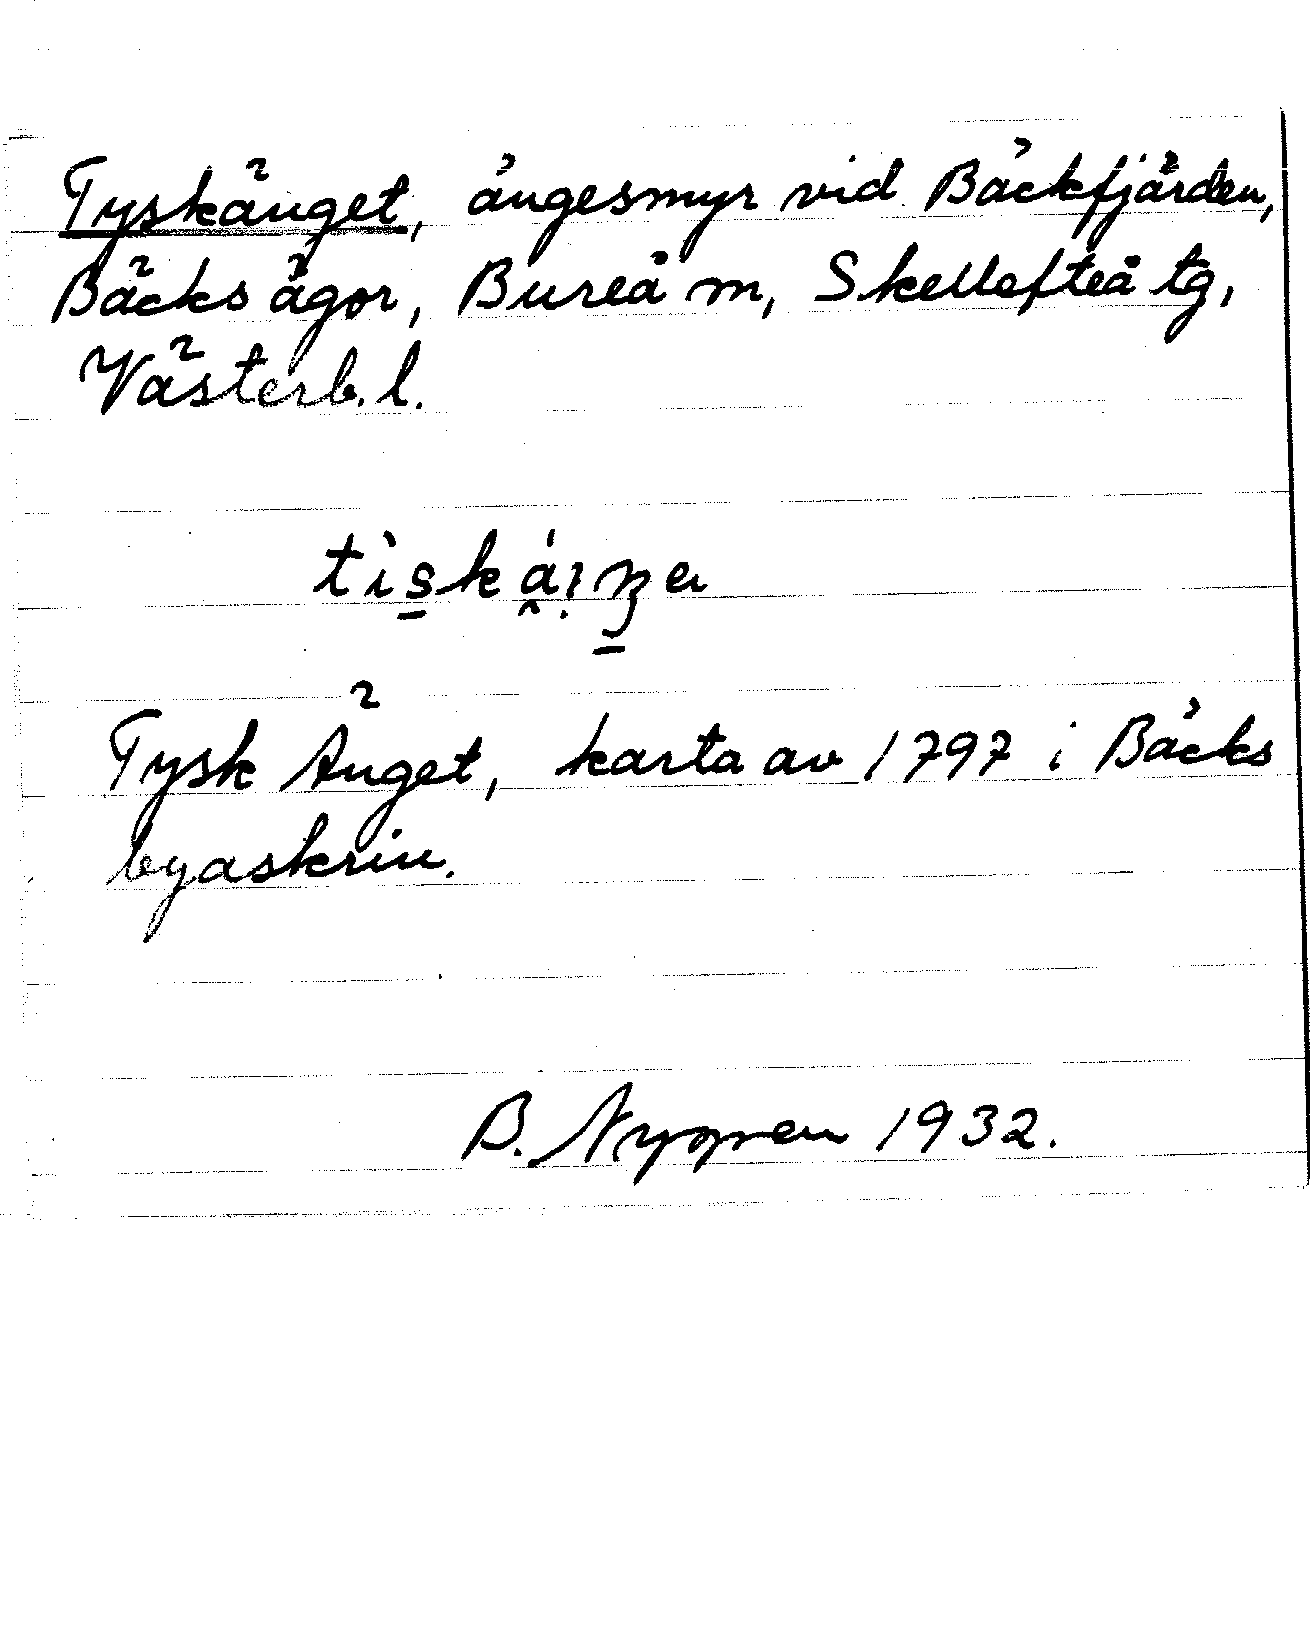 Tyskänget, ängesmyr vid Bäckfjärden,
Bäcks ägor, Bureå m, Skellefteå tg,
Västerb. l.
Tysk Änget, karta av 1797 i Bäcks
byaskrin.
B. 1932.